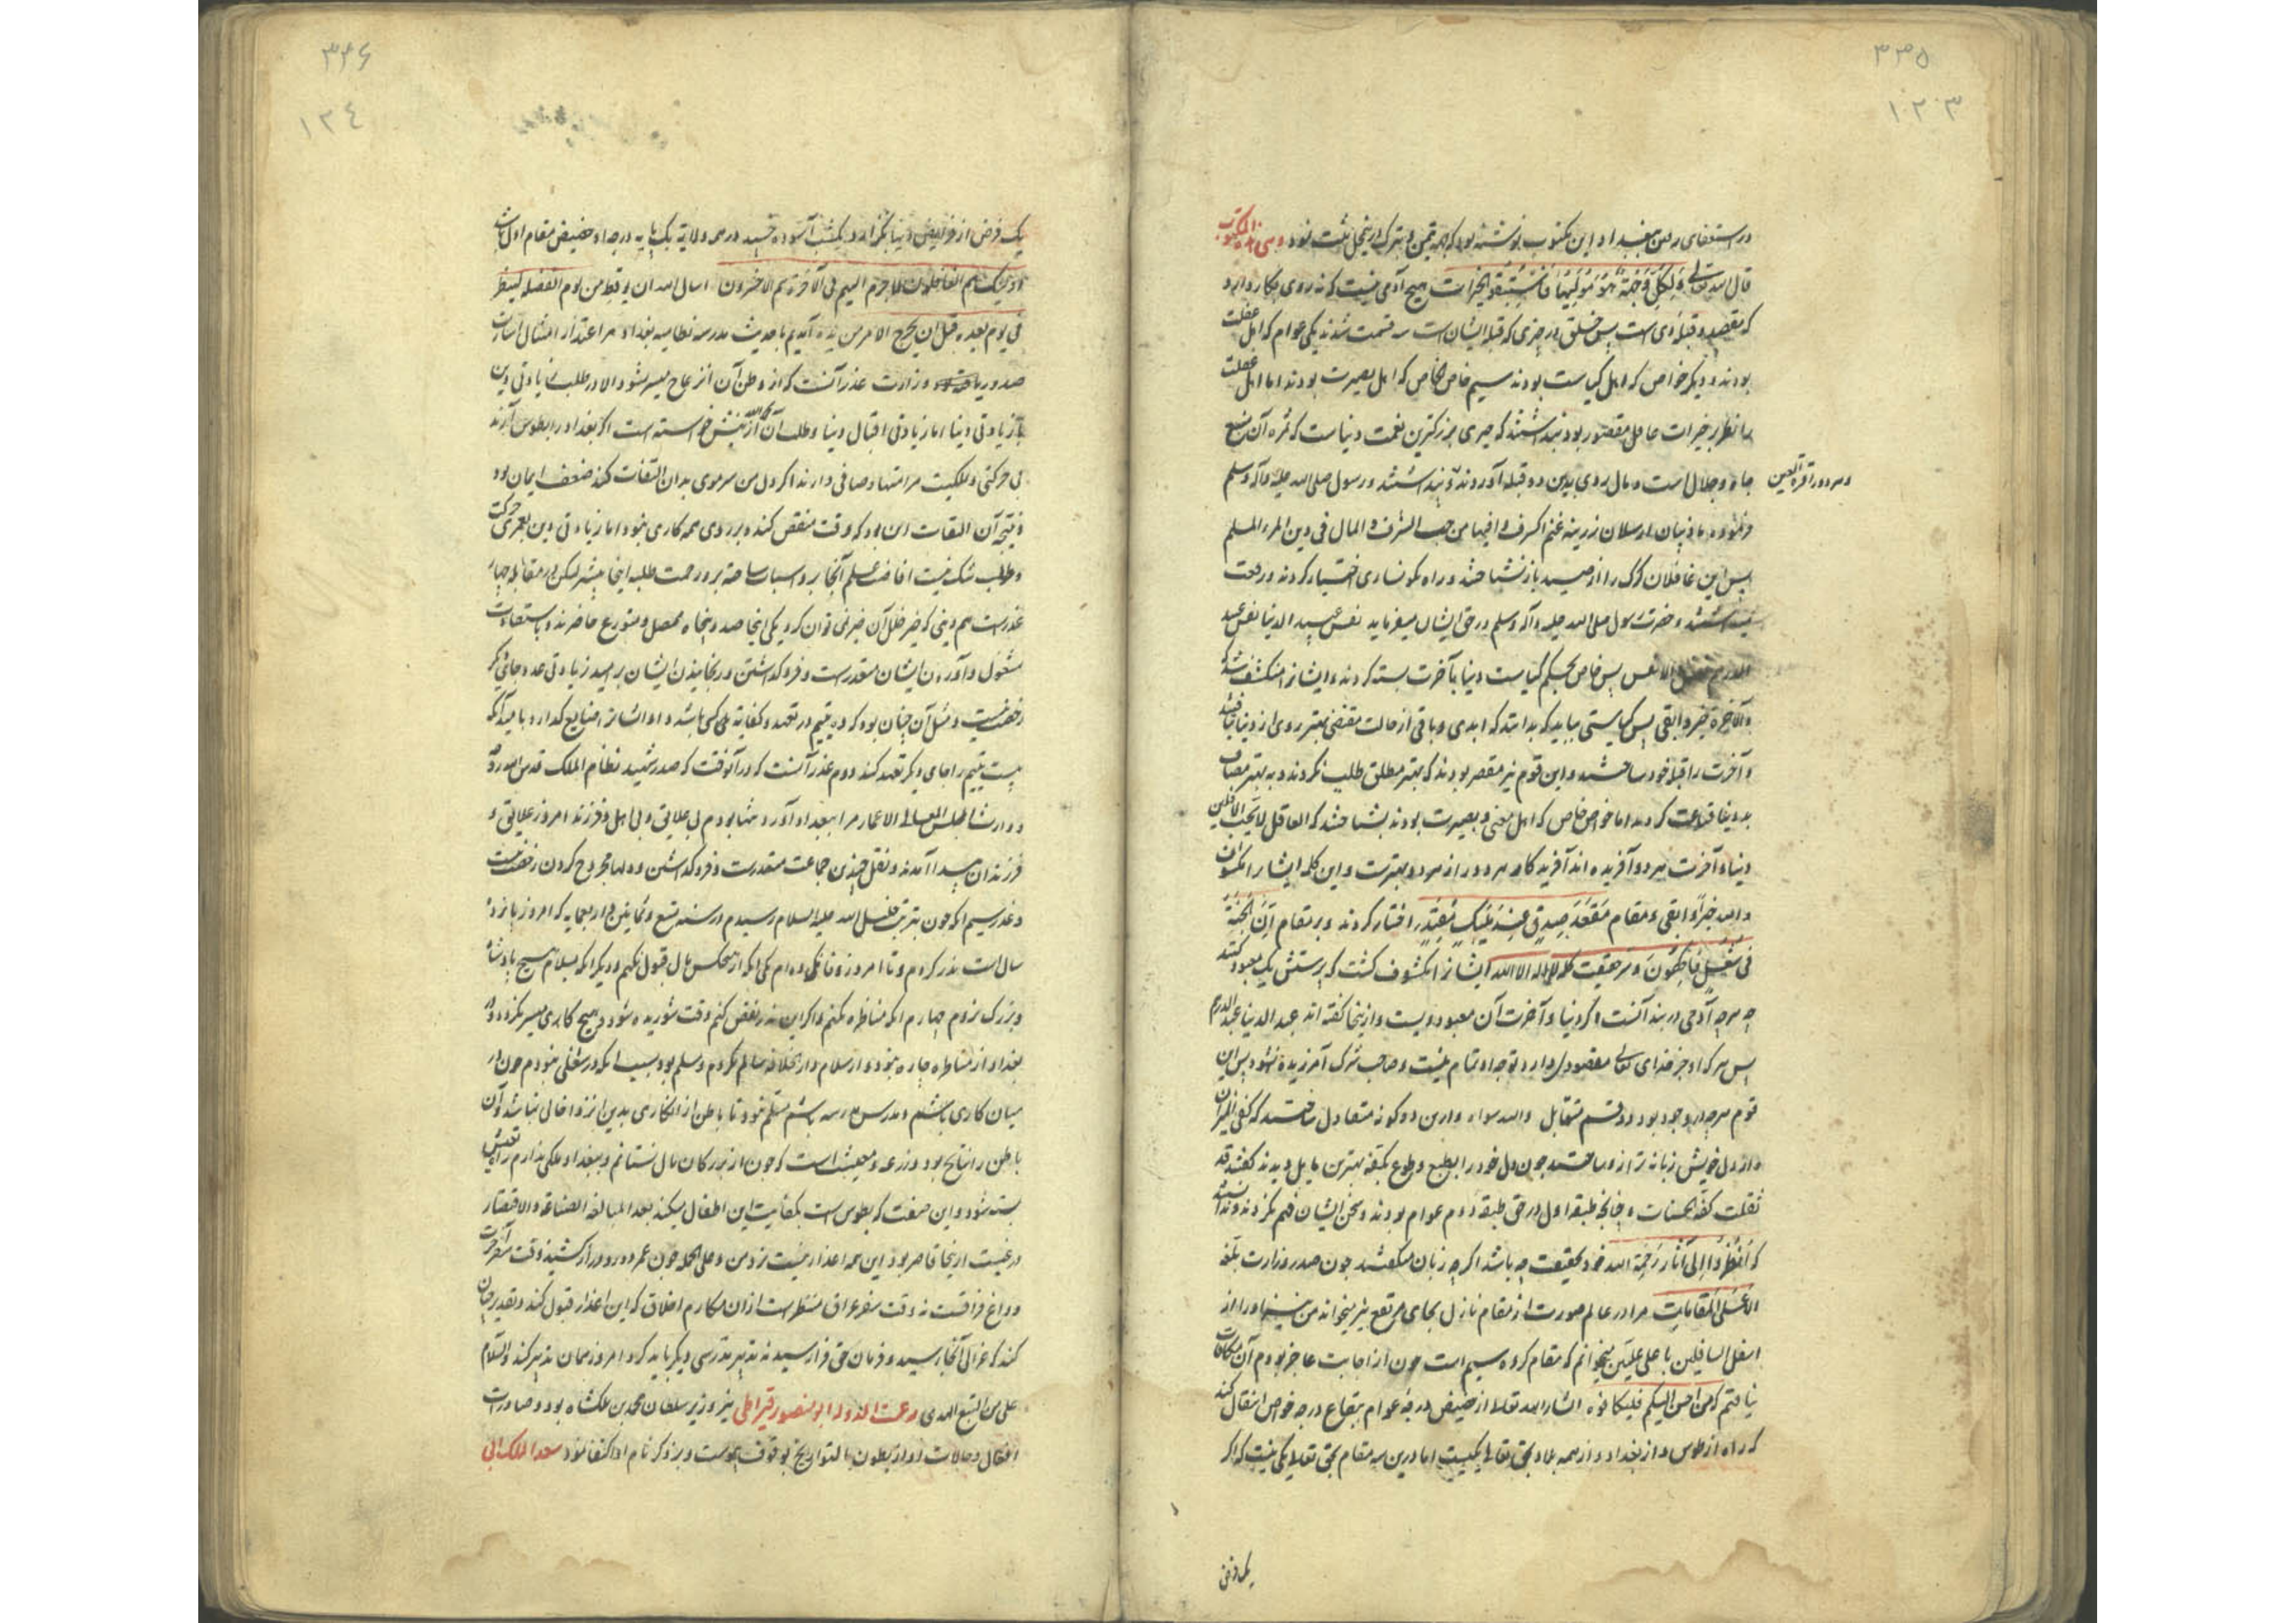 ۳۳۵
۱۲۳
در استعفای رفتن ببغداد و این مکتوب نوشته بود که جهة تیمن و تبرک درین محل ثبت نمود و هی هذه المکتوب
قال الله تعالی وَلِکُلٍّ وِجْهَةٌ هُوَ مُوَلِّیهَا فَاسْتَبِقُوا الخَیْرات هیچ آدمی نیست که نه روی بکاری دارد
که مقصد و قبله وی است پس خلق در چیزی که قبله ایشان است سه قسمت شدند یکی عوام که اهل غفلت
بودند و دیگر خواص که اهل کیاست بودند سیم خاص الخاص که اهل بصیرت بودند اما اهل غفلت
را نظر بر خیرات عاجل مقصور بود پنداشتند که چیزی بزرگترین نعمت دنیاست که ثمره آن منبع
جاه و جلال است و مال روی بدین دو قبله آوردند و پنداشتند و رسول صلی الله علیه و آله و سلم
هر دو را قرة العین
فرموده ما ذئبان ارسلا فی زریبة غنم اکثر فیها من حب الشرف و المال فی دین المرء المسلم
پس این غافلان گرگ را از صید باز نشناختند و راه نگونساری اختیار کردند و رفعت
پنداشتند و حضرت رسول صلی الله علیه و آله و سلم در حق ایشان میفرماید تعس عبد الدنیا تعس عبد
الدرهم پس خاص بحکم کیاست دنیا با آخرت نسبت کردند و ایشانرا منکشف شد که
والآخرة خیر و ابقی پس کیاستی بباید که بدانند که ابدی و باقی از حالت منقضی بهتر روی از دنیا بتافتند
و آخرت را قبله خود ساختند و این قوم نیز مقصر بودند که بهتر مطلق طلب نکردند و به بهتر مضاف
بدنیا قناعت کردند اما خواص خاص که اهل معنی و بصیرت بودند بشناختند که العاقل لا یحب الآفلین
دنیا و آخرت هر دو آفریده اند آفریدگار هر دو از هر دو بهترست و این کلمه ایشانرا مکشوف
والله خیر و ابقی و مقام مَقْعَدِ صِدْقٍ عِنْدَ مَلِیکٍ مُقْتَدِر اختیار کردند و بر مقام اِنَّ اَصْحابَ الجَنَّةِ
فی شُغُلٍ فَاکِهُونَ و سر حقیقت کلمه لا اله الا الله ایشانرا مکشوف گشت که پرستش یک معبود کنند
چه هرچه آدمی در بند آنست اگر دنیا و آخرت آن معبود ویست و ازینجا گفته اند عبد الدنیا عبد الدرهم
پس هر که او جز خدای تعالی مقصود دارد توجه او تمام نیست و صاحب شرک آمرزیده نشود پس این
قوم هرچه در وجود بود دو قسم متقابل والله سواه و ازین دو گونه متعادل ساختند که کفتی المیزان
و از دل خویش زبانه ترازو ساختند چون دل خود را بطبع و طوع بکفه بهترین مایل دیدند گفتند قد
ثقلت کفة الحسنات و چنانچه طبقه اول در حق طبقه دوم عوام بودند و سخن ایشان فهم نکردند و ندانستند
که اُنْظُرُوا اِلی آثَارِ رَحْمَة الله خود حقیقت چه باشد اگر چه زبان میگفتند چون صدر وزارت بلغه
الله اعلی المقامات مرا در عالم صورت از مقام نازل بجای مرتفع میخواند من نیز او را از
اسفل السافلین با علی علیین میخوانم که مقام گروه سیم است چون از اجابت عاجز بودم آن مکافات
نیافتم که من احسن الیکم فلیکافوه انشاء الله تعالی از حضیض درجه عوام بیقاع درجه خواص انتقال کند
که راه از طوس و از بغداد و از همه بلاد بحق تعالی یکیست اما درین سه مقام بحق تعالی یکی نیست که اگر
یک فرض
۳۳۶
۱۲٤
یک فرض از فرایض دنیا بگذارد و یکشب آسوده خسبد در همه ولایت یک پایه درجه او حضیض مقام اول باشد
اولئک هم الغافلون لا جرم انهم فی الآخرة هم الاخسرون اسال الله ان یوقظ من نوم الغفلة لینظر
فی یومه لغده قبل ان یخرج الامر من یده آمدیم با حدیث مدرسه نظامیه بغداد مرا عذر از امتثال اشارت
صدور یافته وزارت عذر آنست که از وطن آن انزعاج میسر نشود الا در طلب زیادتی دین
یا زیادتی دنیا اما زیادتی اقبال دنیا و طلب آن از پیش خواسته است اگر بغداد را بطوس آرند
بی حرکتی و ملکیت مرا متنها و صافی دارند اگر دل من سر موی بدان التفات کند ضعف ایمان بود
و نتیجه آن التفات این بود که وقت منغص کند و پروای همه کاری نبود اما زیادتی دین لعمری حرکت
و طلب شک نیست افاضه علم آنجا و اسباب ساخته تر و زحمت طلبه آنجا بیشتر لیکن در مقابله چهار
عذرست هم دینی که جز خلل آن جبر نمی توان کرد یکی اینجا صد و پنجاه محصل و متورع حاضرند و باستفادت
مشغول و آوردن ایشان متعذرست و فروگذاشتن و رنجانیدن ایشان بر امید زیادتی عدد جای دیگر
رخصت نیست و مثل آن چنان بود که ده یتیم در تعهد و کفایت کسی باشد و او ایشانرا ضایع گذارد بامید آنکه
بیست یتیم را جای دیگر تعهد کند دوم عذر آنست که در آنوقت که صدر شهید نظام الملک قدس الله روحه
مرا ببغداد آورد تنها بودم بی علایق و بی اهل و فرزند امروز علایق و
فرزندان پیدا آمدند و نقل چنین جماعت متعذرست و فروگذاشتن و دلها مجروح کردن رخصت نیست
و عذر سیم آنکه چون بتربت خلیل الله علیه السلام رسیدم در سنه تسع و ثمانین و اربعمایه که امروز پانزده
سال است نذر کردم و تا امروز وفا کرده ام یکی آنکه از هیچکس مال قبول نکنم و دیگر آنکه بسلام هیچ پادشاه
و بزرگ نروم چهارم آنکه مناظره نکنم و اگر این نذر نقض کنم وقت شوریده شود و هیچ کاری میسر نگردد و در
بغداد از مناظره چاره نبود و از سلام دار الخلافه سالم نگردم و مسلم بود بسبب آنکه در شغلی نبودم چون در
میان کاری باشم و مدرس مدرسه باشم مسلم نبود تا باطن از انکاری بدین انزوا خالی نباشد و آن
باطن را نتایج بود و زرعه و معیشت است که چون از بزرگان مال نستانم و ببغداد ملکی ندارم راه تعیش
بسته شود و این ضیعت که بطوس است بکفایت این اطفال میکند بعد المبالغه القناعة و الاقتصاد
در غیبت از اینجا قاصر بود این همه اعذار نیست نزد من و علی الجمله چون عمر دور و دراز کشید وقت سفر آخرت
و وداع فراقست نه وقت سفر عراق منتظر است از آن مکارم اخلاق که این اعذار قبول کند و تقدیر چنان
کند که غزالی آنجا رسید و فرمان حق فرا رسید نه تدبیر مدرسی دیگر باید کرد امروز همان تدبیر کند والسلام
علی من اتبع الهدی و عمدت الدوله ابو منصور قیراطی نیز وزیر سلطان محمد بن ملکشاه بود و صادرات
افعال و حالات او از بطون التواریخ بوقوف پیوست و بذکر نام او اکتفا نمود سعد الملک ابی